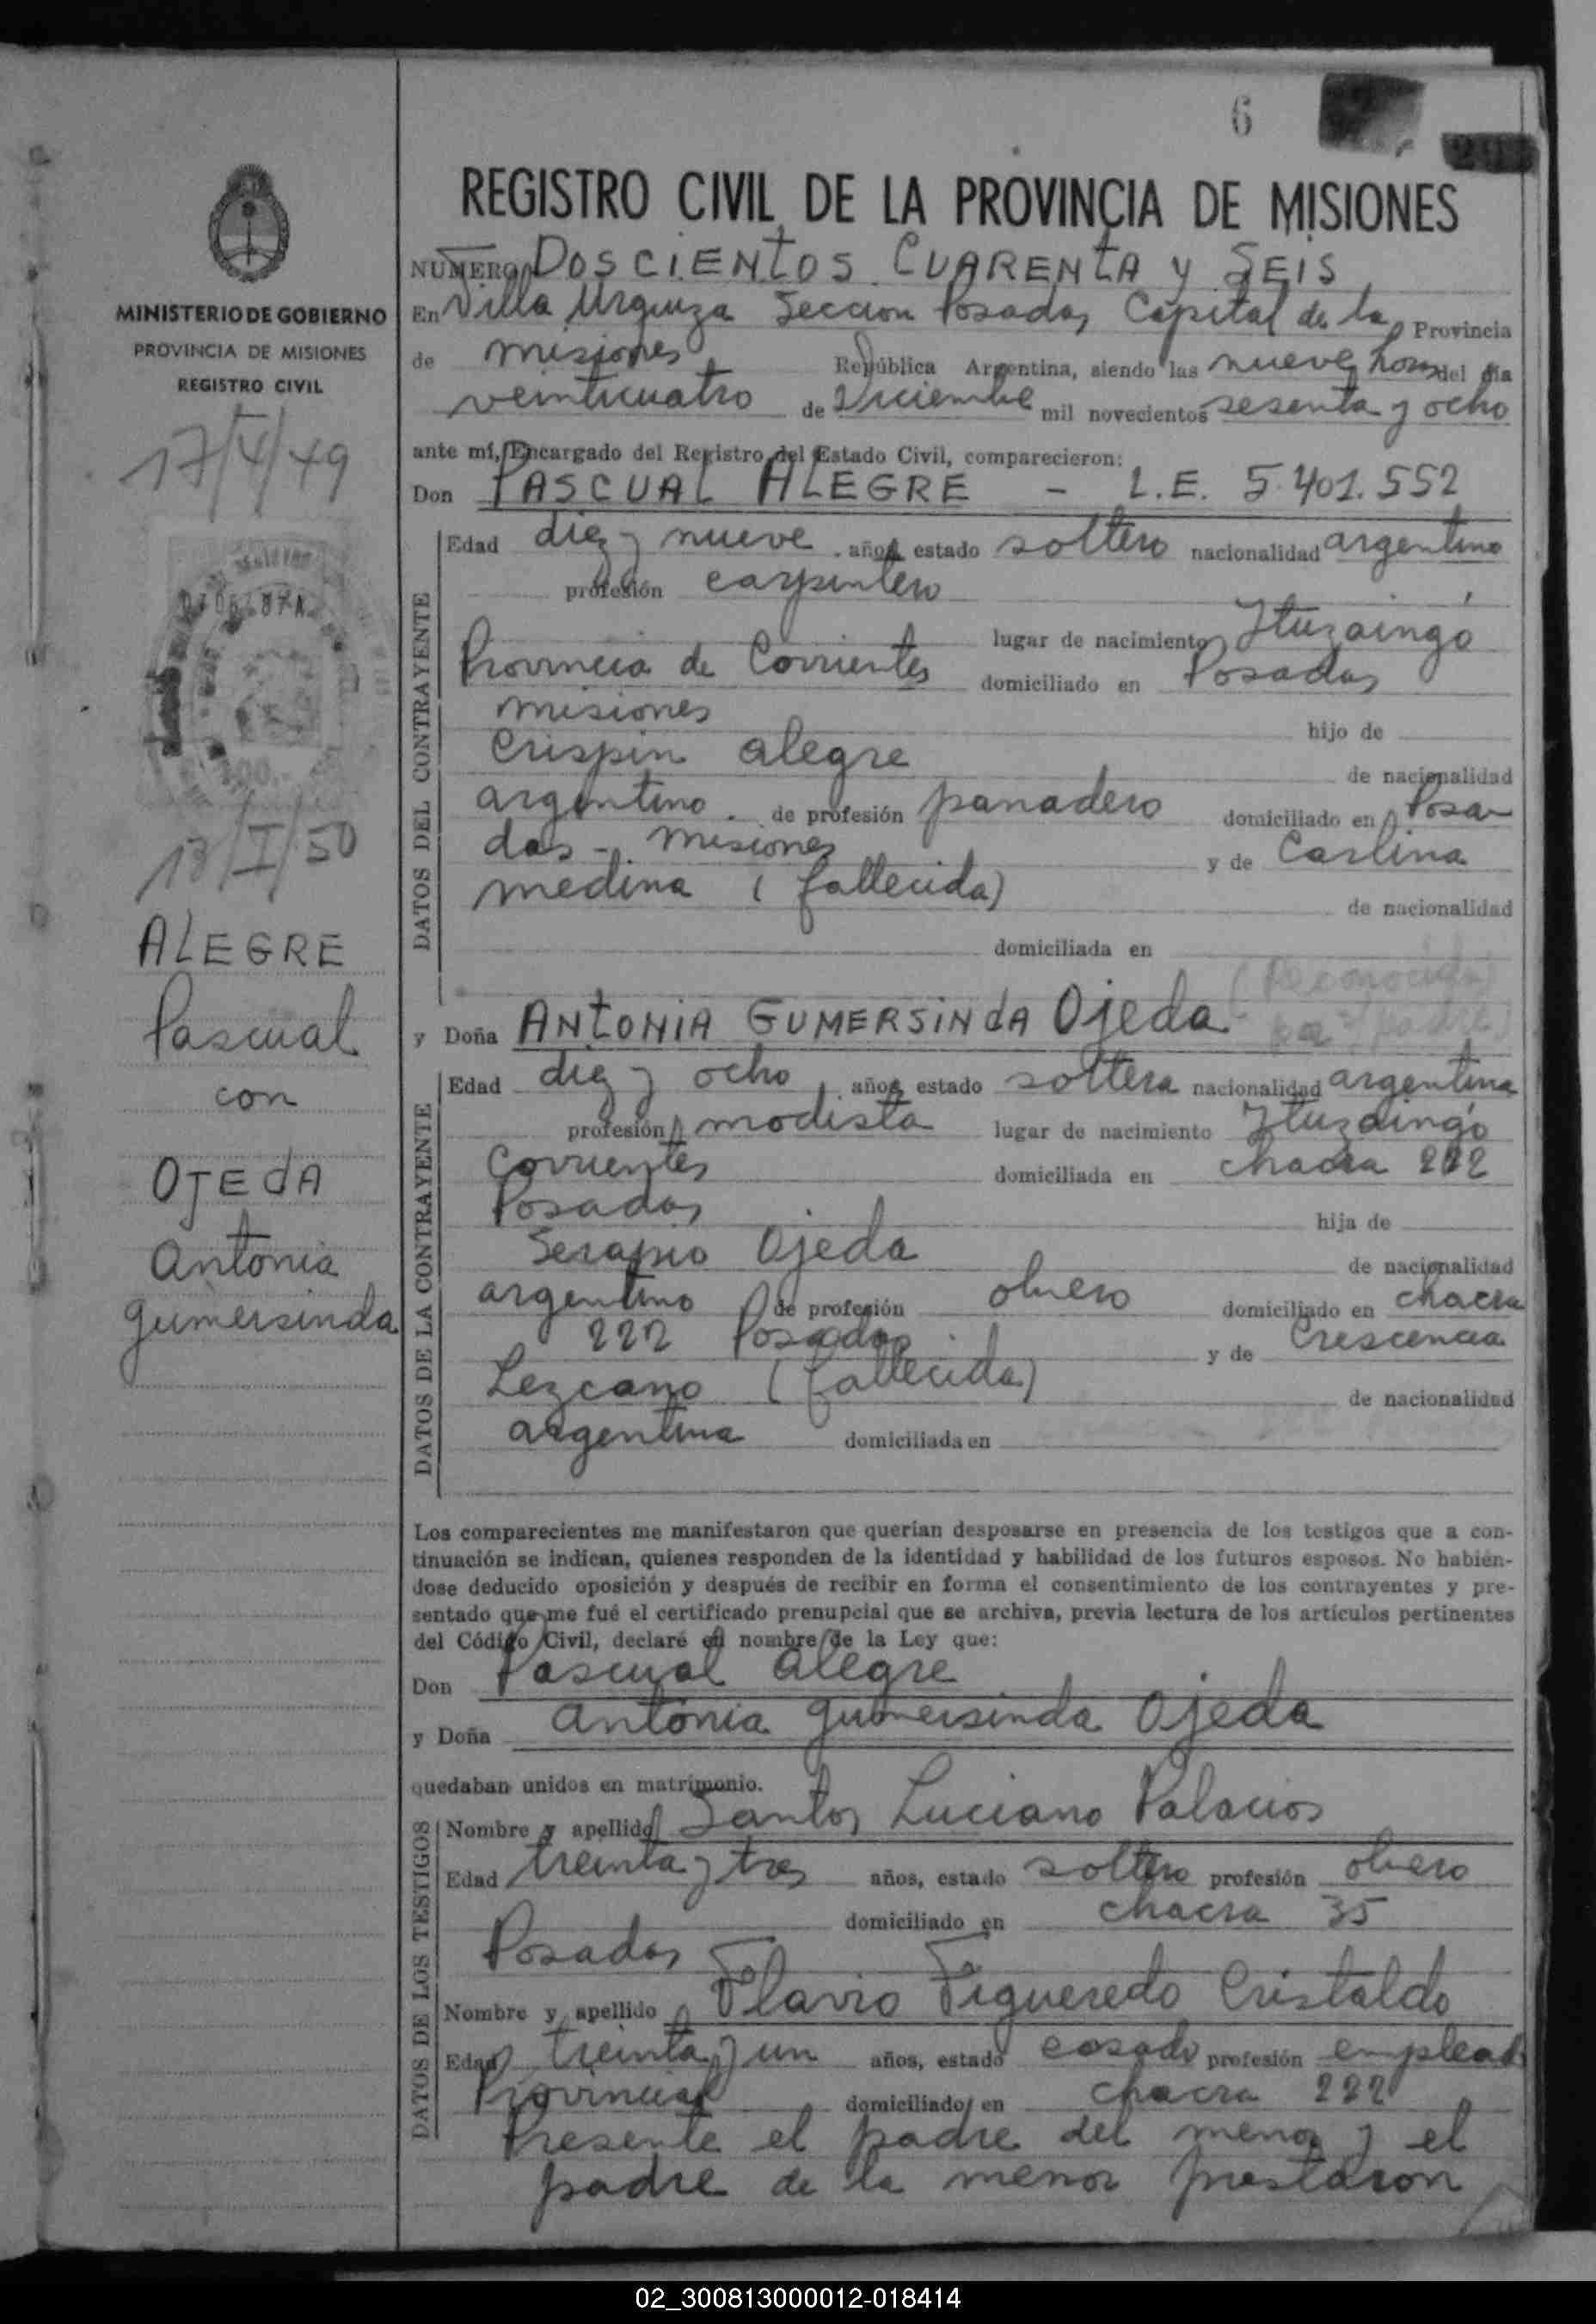 6
REGISTRO CIVIL DE LA PROVINCIA DE MISIONES
NUMERO DOSCIENTOS CUARENTA y SEIS
En Villa Urquiza Seccion Posadas Capital de la Provincia
de misiones República Argentina, siendo las nueve horas del día
veinticuatro de Diciembre mil novecientos sesenta y ocho
ante mí, Encargado del Registro del Estado Civil, comparecieron:
Don PASCUAL ALEGRE - L.E. 5.401.552
DATOS DEL CONTRAYENTE
Edad diez y nueve años estado soltero nacionalidad argentino
profesión carpintero
lugar de nacimiento Ituzaingó
Provincia de Corrientes domiciliado en Posadas
misiones hijo de
Crispin alegre de nacionalidad
argentino de profesión panadero domiciliado en Posa
das - misiones y de Carlina
medina (fallecida) de nacionalidad
domiciliada en
(Reconocida
y Doña ANTONIA GUMERSINDA Ojeda padre)
DATOS DE LA CONTRAYENTE
Edad diez y ocho años estado soltera nacionalidad argentina
profesión modista lugar de nacimiento Ituzaingó
Corrientes domiciliada en chacra 222
Posadas hija de
Serapio Ojeda de nacionalidad
argentino de profesión obrero domiciliado en chacra
222 Posadas y de Crescencia
Lezcano (fallecida) de nacionalidad
argentina domiciliada en
Los comparecientes me manifestaron que querían desposarse en presencia de los testigos que a con-
tinuación se indican, quienes responden de la identidad y habilidad de los futuros esposos. No habién-
dose deducido oposición y después de recibir en forma el consentimiento de los contrayentes y pre-
sentado que me fué el certificado prenupcial que se archiva, previa lectura de los artículos pertinentes
del Código Civil, declaré en nombre de la Ley que:
Don Pascual alegre
y Doña antonia gumersinda Ojeda
quedaban unidos en matrimonio.
DATOS DE LOS TESTIGOS
Nombre y apellido Santos Luciano Palacios
Edad treinta y tres años, estado soltero profesión obrero
domiciliado en chacra 35
Posadas
Nombre y apellido Flavio Figueredo Cristaldo
Edad treinta y un años, estado casado profesión empleado
Provincial domiciliado en chacra 222
Presente el padre del menor y el
padre de la menor prestaron
MINISTERIO DE GOBIERNO
PROVINCIA DE MISIONES
REGISTRO CIVIL
17/4/49
13/I/50
ALEGRE
Pascual
con
OJEdA
Antonia
gumersinda
02_300813000012-018414